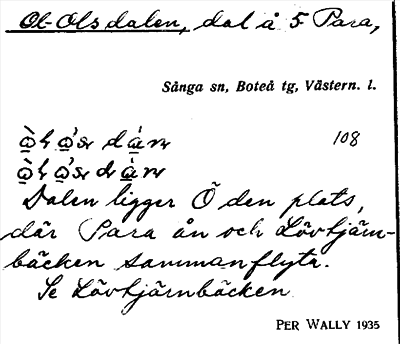 Ol-Olsdalen, dal å 5 Para,
Sånga sn, Boteå tg, Västern. l.
108
Dalen ligger Ö den plats,
där Para ån och Lövtjärn-
bäcken sammanflyta.
Se Lövtjärnbäcken
PER WALLY 1935